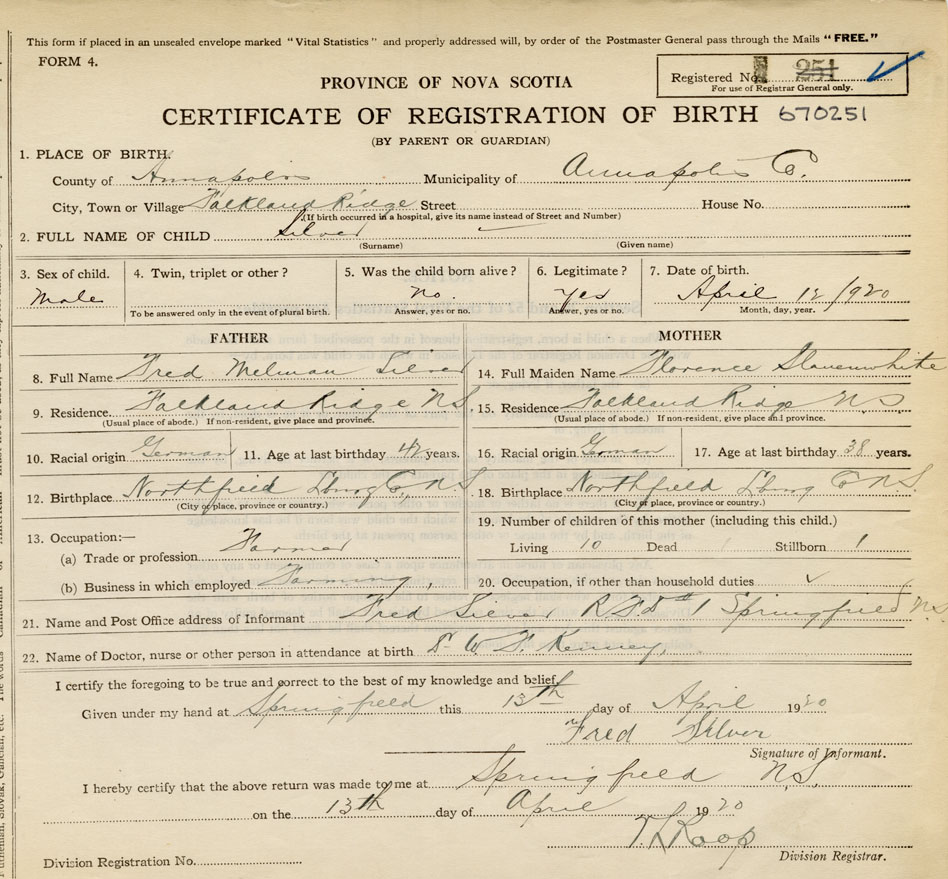 This form if placed in an unsealed envelope marked "Vital Statistics" and properly addressed will, by order of the Postmaster General pass through the Mails "FREE."
FORM 4.
Registered No. 251
For use of Registrar General only.
PROVINCE OF NOVA SCOTIA
CERTIFICATE OF REGISTRATION OF BIRTH 670251
(BY PARENT OR GUARDIAN)
1. PLACE OF BIRTH.
County of Annapolis Municipality of Annapolis Co.
City, Town or Village Falkland Ridge Street House No.
(If birth occurred in a hospital, give its name instead of Street and Number)
2. FULL NAME OF CHILD Silver
(Surname) (Given name)
3. Sex of child. 4. Twin, triplet or other? 5. Was the child born alive? 6. Legitimate? 7. Date of birth.
Male No. Yes April 12 1920
To be answered only in the event of plural birth. Answer, yes or no. Answer, yes or no. Month, day, year.
FATHER MOTHER
8. Full Name Fred Melman Silver 14. Full Maiden Name Florence Slauenwhite
9. Residence Falkland Ridge N.S. 15. Residence Falkland Ridge N S
(Usual place of abode.) If non-resident, give place and province. (Usual place of abode.) If non-resident, give place and province.
10. Racial origin German 11. Age at last birthday years. 16. Racial origin German 17. Age at last birthday 38 years.
12. Birthplace Northfield Lbng Co, N S 18. Birthplace Northfield Lbng Co N.S.
(City or place, province or country.) (City or place, province or country.)
13. Occupation:— 19. Number of children of this mother (including this child.)
(a) Trade or profession Farmer Living 10 Dead Stillborn 1
(b) Business in which employed Farming, 20. Occupation, if other than household duties
21. Name and Post Office address of Informant Fred Silver R.F.D # 1 Springfield N.S.
22. Name of Doctor, nurse or other person in attendance at birth Dr W F Kenney,
I certify the foregoing to be true and correct to the best of my knowledge and belief.
Given under my hand at Springfield this 13th day of April 1920
Fred Silver
Signature of Informant.
I hereby certify that the above return was made to me at Springfield N.S.
on the 13th day of April 1920
Roop
Division Registration No. Division Registrar.